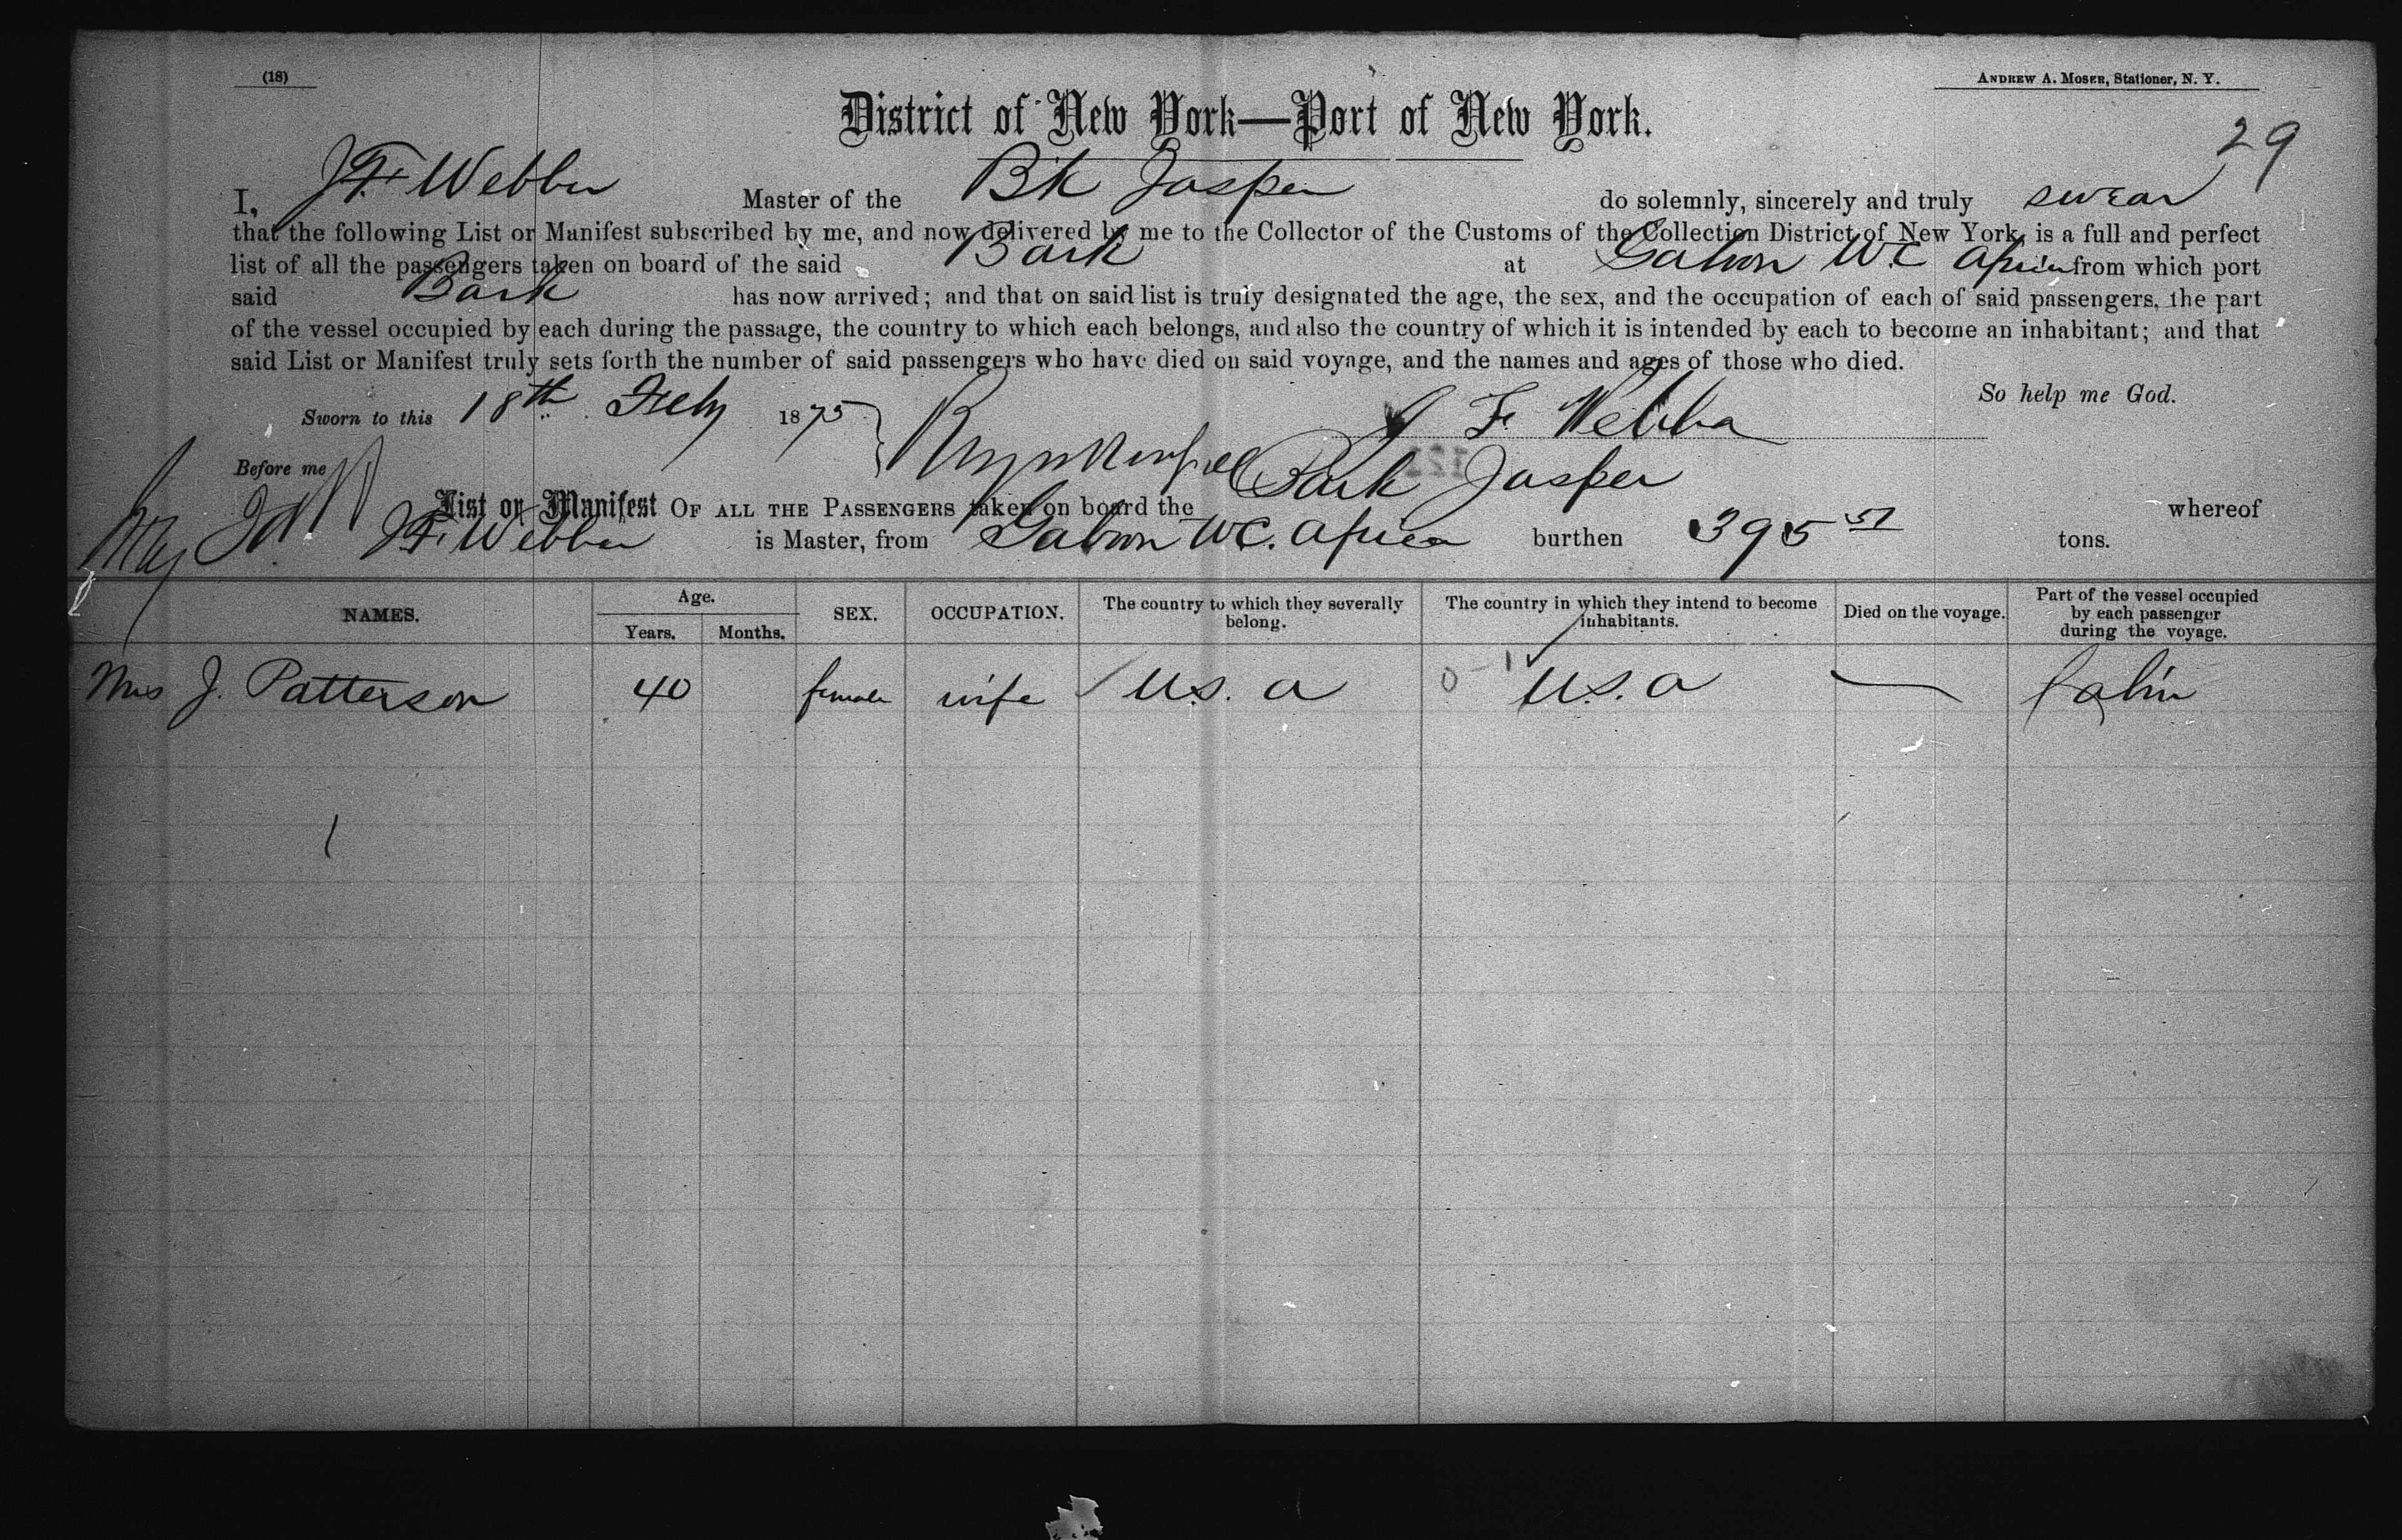 (18)
ANDREW A. MOSER, Stationer, N. Y.
District of New York—Port of New York.
29
I, J. F. Webber Master of the Bk Jasper do solemnly, sincerely and truly swear
that the following List or Manifest subscribed by me, and now delivered by me to the Collector of the Customs of the Collection District of New York, is a full and perfect
list of all the passengers taken on board of the said Bark at Gabon W.C. Africa from which port
said Bark has now arrived; and that on said list is truly designated the age, the sex, and the occupation of each of said passengers, the part
of the vessel occupied by each during the passage, the country to which each belongs, and also the country of which it is intended by each to become an inhabitant; and that
said List or Manifest truly sets forth the number of said passengers who have died on said voyage, and the names and ages of those who died.
So help me God.
Sworn to this 18th Feby 1875 J F Webber
Before me
List or Manifest OF ALL THE PASSENGERS taken on board the Bark Jasper whereof
J. F. Webber is Master, from Gabon W.C. Africa burthen 395 51 tons.
NAMES. Age. Years. Months. SEX. OCCUPATION. The country to which they severally belong. The country in which they intend to become inhabitants. Died on the voyage. Part of the vessel occupied by each passenger during the voyage.
Mrs J. Patterson 40 female wife U.S. A U.S. A — Cabin
1